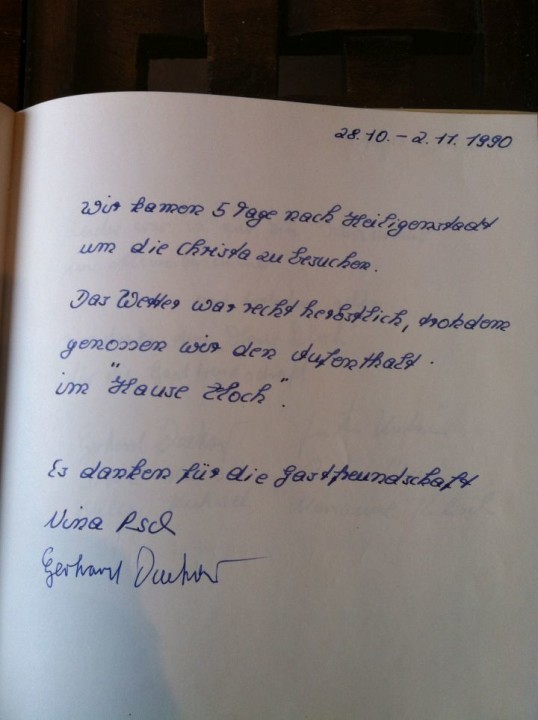 28.10. – 2.11. 1990
Wir kamen 5 Tage nach Heiligenstadt
um die Christa zu besuchen.
Das Wetter war recht herbstlich, trotzdem
genossen wir den Aufenthalt
im "Hause Hoch".
Es danken für die Gastfreundschaft
Nina
Gerhard